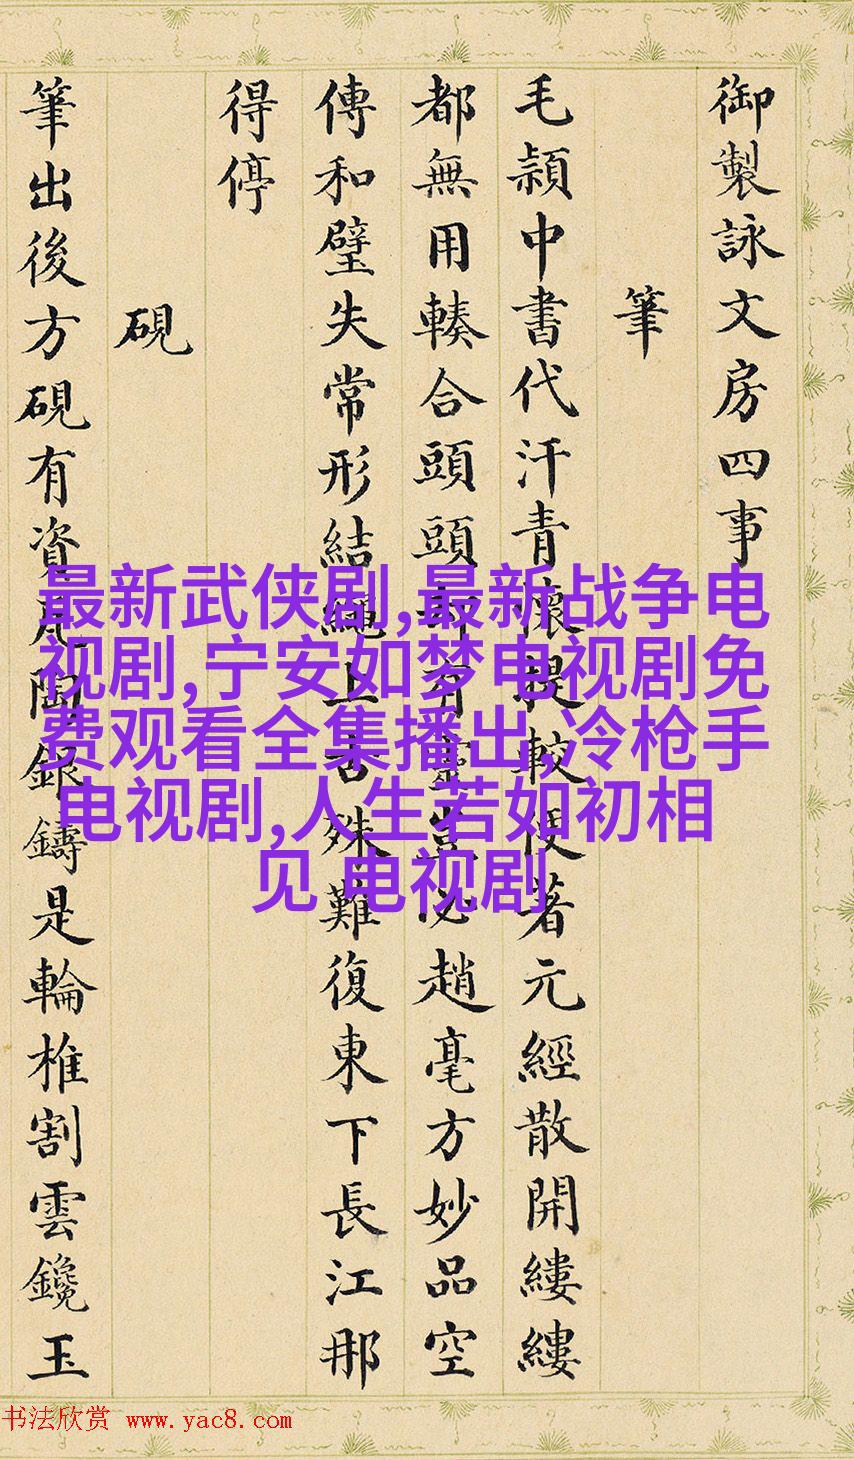 御製詠文房四事
筆
毛穎中書代汗青懷提較便著元經散開縷縷
都無用輳合頭頭有靈豈必趙毫方妙品空
傳和璧失常形結繩上古殊難復東下長江那
得停
硯
筆出後方硯有資瓦陶銀鑄是輪椎割雲鑱玉
最新武侠剧,最新战争电
视剧,宁安如梦电视剧免
费观看全集播出,冷枪手
电视剧,人生若如初相
见 电视剧
书法欣赏 www.yac8.com